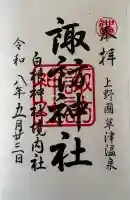 奉拝
上野國草津温泉
諏訪神社
白根神社境内社
令和八年五月廿三日